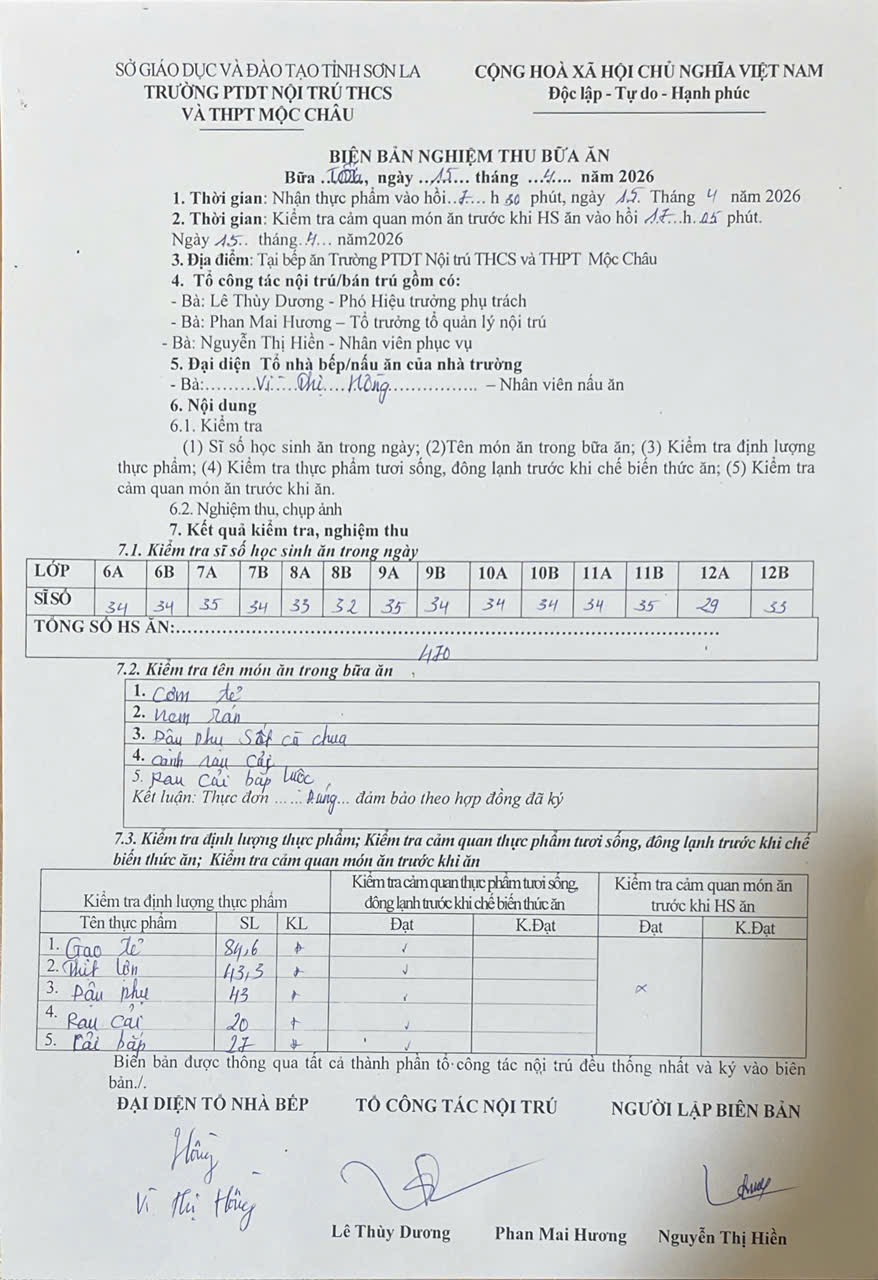 SỞ GIÁO DỤC VÀ ĐÀO TẠO TỈNH SƠN LA
TRƯỜNG PTDT NỘI TRÚ THCS
VÀ THPT MỘC CHÂU
CỘNG HOÀ XÃ HỘI CHỦ NGHĨA VIỆT NAM
Độc lập - Tự do - Hạnh phúc
BIÊN BẢN NGHIỆM THU BỮA ĂN
Bữa ..., ngày ..15... tháng ...4.... năm 2026
1. Thời gian: Nhận thực phẩm vào hồi..7... h 30 phút, ngày 15. Tháng 4 năm 2026
2. Thời gian: Kiểm tra cảm quan món ăn trước khi HS ăn vào hồi 17...h.05 phút.
Ngày 15.. tháng.4... năm2026
3. Địa điểm: Tại bếp ăn Trường PTDT Nội trú THCS và THPT Mộc Châu
4. Tổ công tác nội trú/bán trú gồm có:
- Bà: Lê Thùy Dương - Phó Hiệu trưởng phụ trách
- Bà: Phan Mai Hương – Tổ trưởng tổ quản lý nội trú
- Bà: Nguyễn Thị Hiền - Nhân viên phục vụ
5. Đại diện Tổ nhà bếp/nấu ăn của nhà trường
- Bà:.........Vì Thị Hồng................. – Nhân viên nấu ăn
6. Nội dung
6.1. Kiểm tra
(1) Sĩ số học sinh ăn trong ngày; (2)Tên món ăn trong bữa ăn; (3) Kiểm tra định lượng
thực phẩm; (4) Kiểm tra thực phẩm tươi sống, đông lạnh trước khi chế biến thức ăn; (5) Kiểm tra
cảm quan món ăn trước khi ăn.
6.2. Nghiệm thu, chụp ảnh
7. Kết quả kiểm tra, nghiệm thu
7.1. Kiểm tra sĩ số học sinh ăn trong ngày
LỚP 6A 6B 7A 7B 8A 8B 9A 9B 10A 10B 11A 11B 12A 12B
SĨ SỐ 34 34 35 34 33 32 35 34 34 34 34 35 29 33
TỔNG SỐ HS ĂN:..................................................
470
7.2. Kiểm tra tên món ăn trong bữa ăn
1. Cơm tẻ
2. Nem rán
3. Đậu phụ sốt cà chua
4. Canh rau cải
5. Rau cải bắp luộc
Kết luận: Thực đơn ......Đúng... đảm bảo theo hợp đồng đã ký
7.3. Kiểm tra định lượng thực phẩm; Kiểm tra cảm quan thực phẩm tươi sống, đông lạnh trước khi chế
biến thức ăn; Kiểm tra cảm quan món ăn trước khi ăn
Kiểm tra định lượng thực phẩm
Kiểm tra cảm quan thực phẩm tươi sống,
đông lạnh trước khi chế biến thức ăn
Kiểm tra cảm quan món ăn
trước khi HS ăn
Tên thực phẩm SL KL Đạt K.Đạt Đạt K.Đạt
1. Gạo tẻ 84,6 + ✓
2. Thịt lợn 43,3 + ✓
3. Đậu phụ 43 + ✓ x
4. Rau cải 20 + ✓
5. Cải bắp 27 + ✓
Biên bản được thông qua tất cả thành phần tổ công tác nội trú đều thống nhất và ký vào biên
bản./.
ĐẠI DIỆN TỔ NHÀ BẾP TỔ CÔNG TÁC NỘI TRÚ NGƯỜI LẬP BIÊN BẢN
Hồng
Vì Thị Hồng
Lê Thùy Dương Phan Mai Hương Nguyễn Thị Hiền